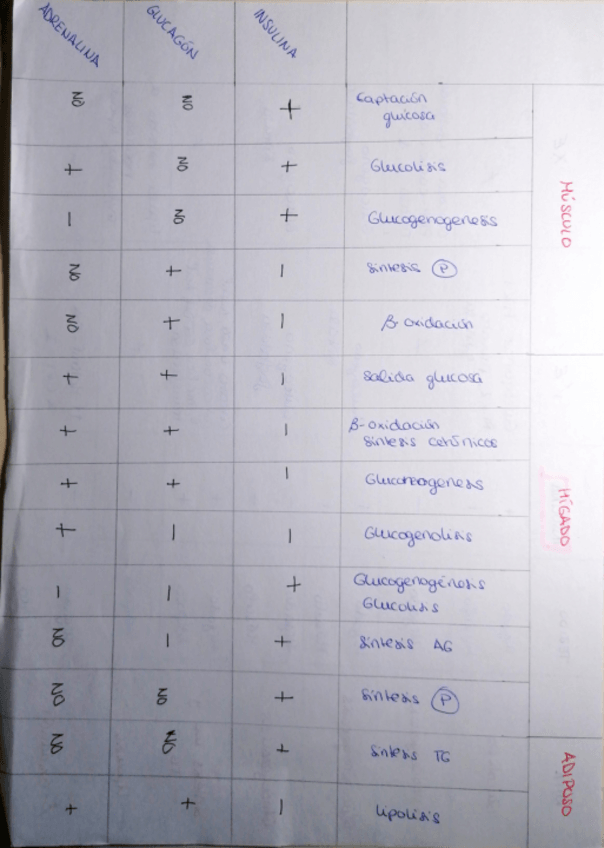 ADRENALINA GLUCAGÓN INSULINA
MÚSCULO
NO NO + Captación
glucosa
+ NO + Glucolisis
- NO + Glucogenogenesis
NO + - Sintesis P
NO + - β-oxidación
HÍGADO
+ + - Salida glucosa
+ + - β-oxidación
Síntesis cetónicos
+ + - Gluconeogenesis
+ - - Glucogenolisis
- - + Glucogenogénesis
Glucolisis
NO - + Síntesis AG
NO NO + Síntesis P
ADIPOSO
NO NO + Síntesis TG
+ + - Lipolisis